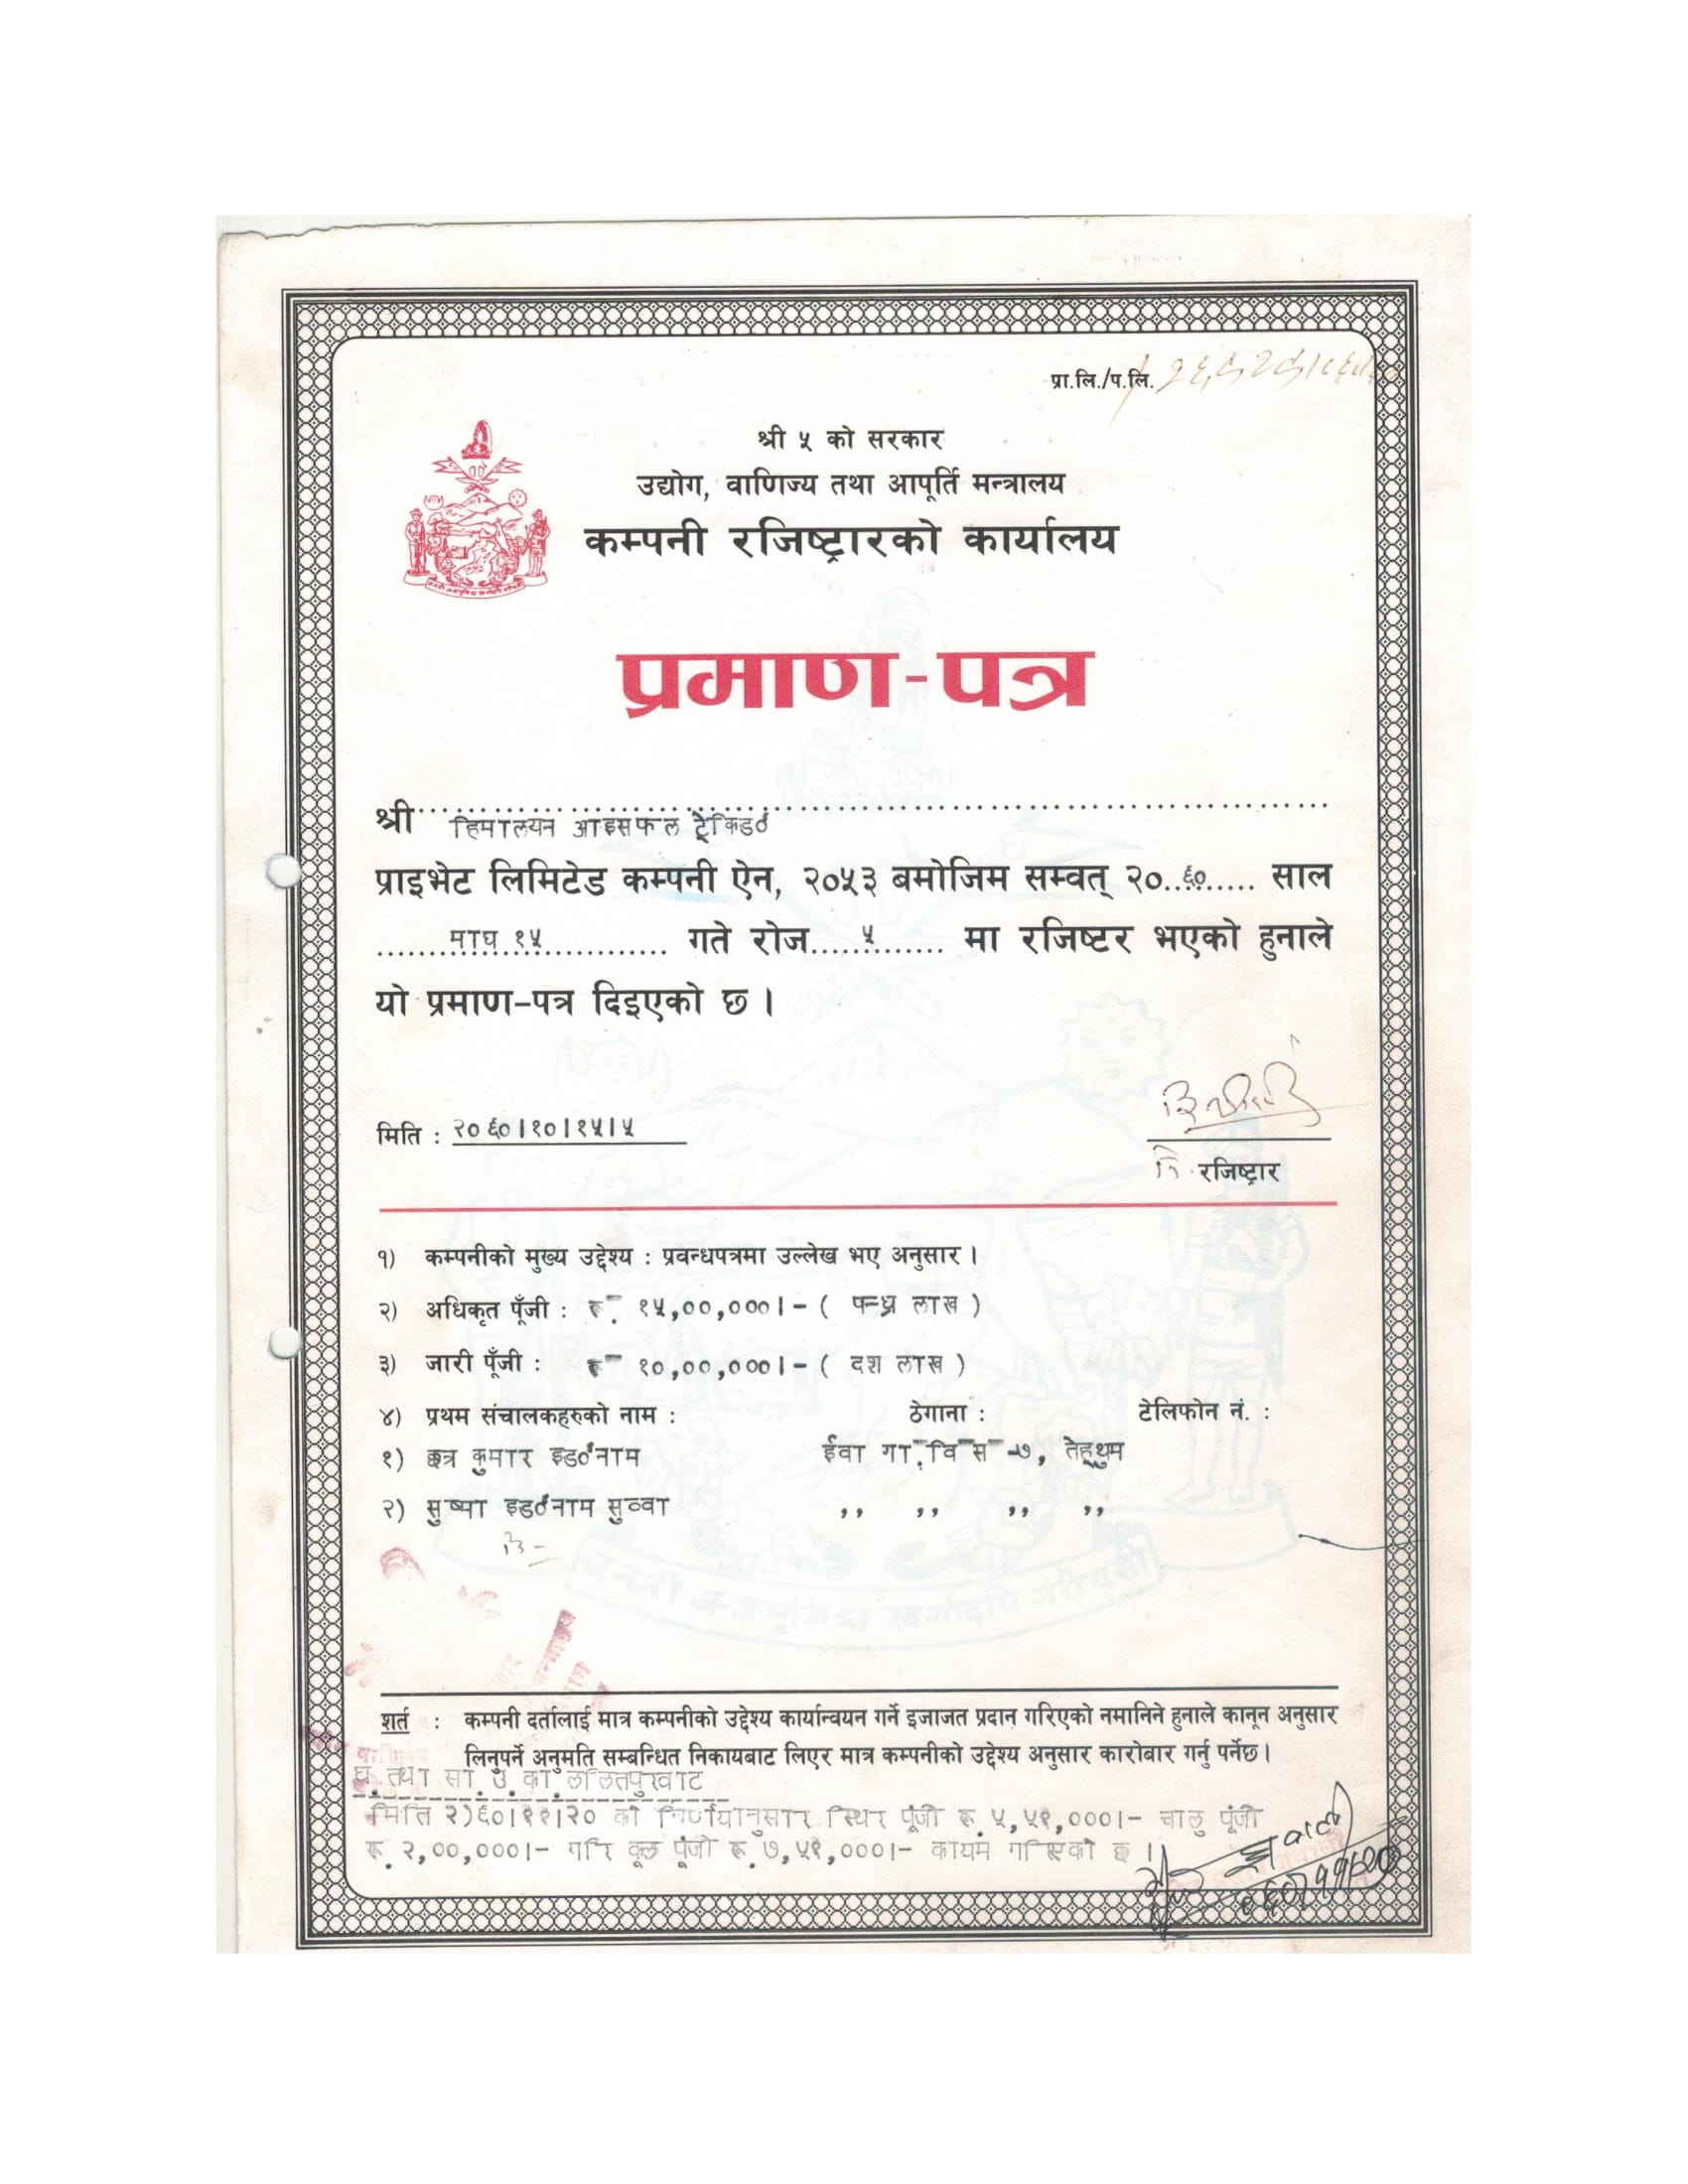 प्रा.लि./प.लि.
श्री ५ को सरकार
उद्योग, वाणिज्य तथा आपूर्ति मन्त्रालय
कम्पनी रजिष्ट्रारको कार्यालय
प्रमाण-पत्र
श्री हिमालयन आइसफल ट्रेकिङ
प्राइभेट लिमिटेड कम्पनी ऐन, २०५३ बमोजिम सम्वत् २०..६०...... साल
......माघ १५............ गते रोज.....५....... मा रजिष्टर भएको हुनाले
यो प्रमाण-पत्र दिइएको छ ।
मिति : २०६०।१०।१५।५
नि. रजिष्ट्रार
१) कम्पनीको मुख्य उद्देश्य : प्रवन्धपत्रमा उल्लेख भए अनुसार ।
२) अधिकृत पूँजी : रू. १५,००,०००।- ( पन्ध्र लाख )
३) जारी पूँजी : रू १०,००,०००।- ( दश लाख )
४) प्रथम संचालकहरुको नाम : ठेगाना : टेलिफोन नं. :
१) छत्र कुमार इङनाम ईवा गा.वि स -७, तेह्थुम
२) सुष्मा इङनाम सुव्वा ,, ,, ,, ,,
शर्त : कम्पनी दर्तालाई मात्र कम्पनीको उद्देश्य कार्यान्वयन गर्ने इजाजत प्रदान गरिएको नमानिने हुनाले कानून अनुसार
लिनुपर्ने अनुमति सम्बन्धित निकायबाट लिएर मात्र कम्पनीको उद्देश्य अनुसार कारोबार गर्नु पर्नेछ ।
घ. तथा सा. उ. का ललितपुरवाट
मिति २)६०।११।२० को निर्णयानुसार स्थिर पूंजी रू. ५,५१,०००।- चालु पूंजी
रू. २,००,०००।- गरि कूल पूंजी रू. ७,५१,०००।- कायम गरिएको छ ।